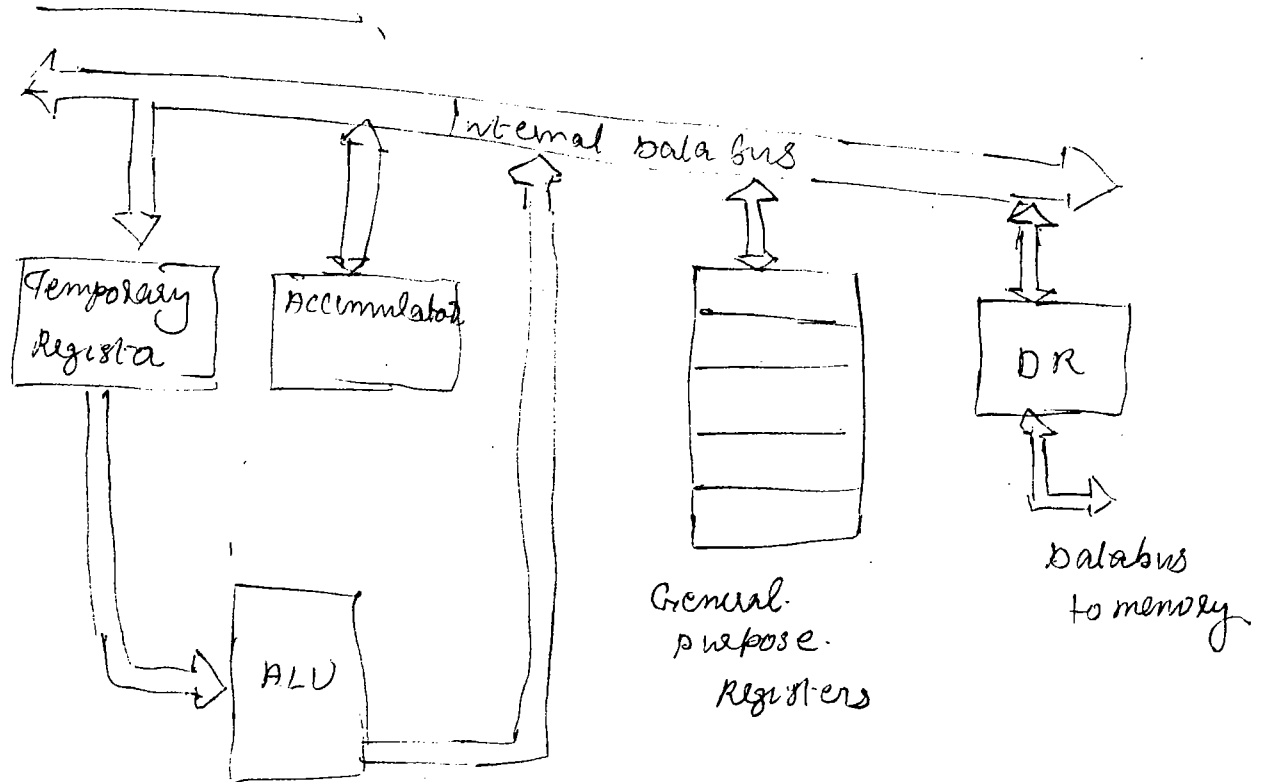 Internal Data bus
Temporary
Register
Accumulator
DR
ALU
General.
purpose.
Registers
Databus
to memory